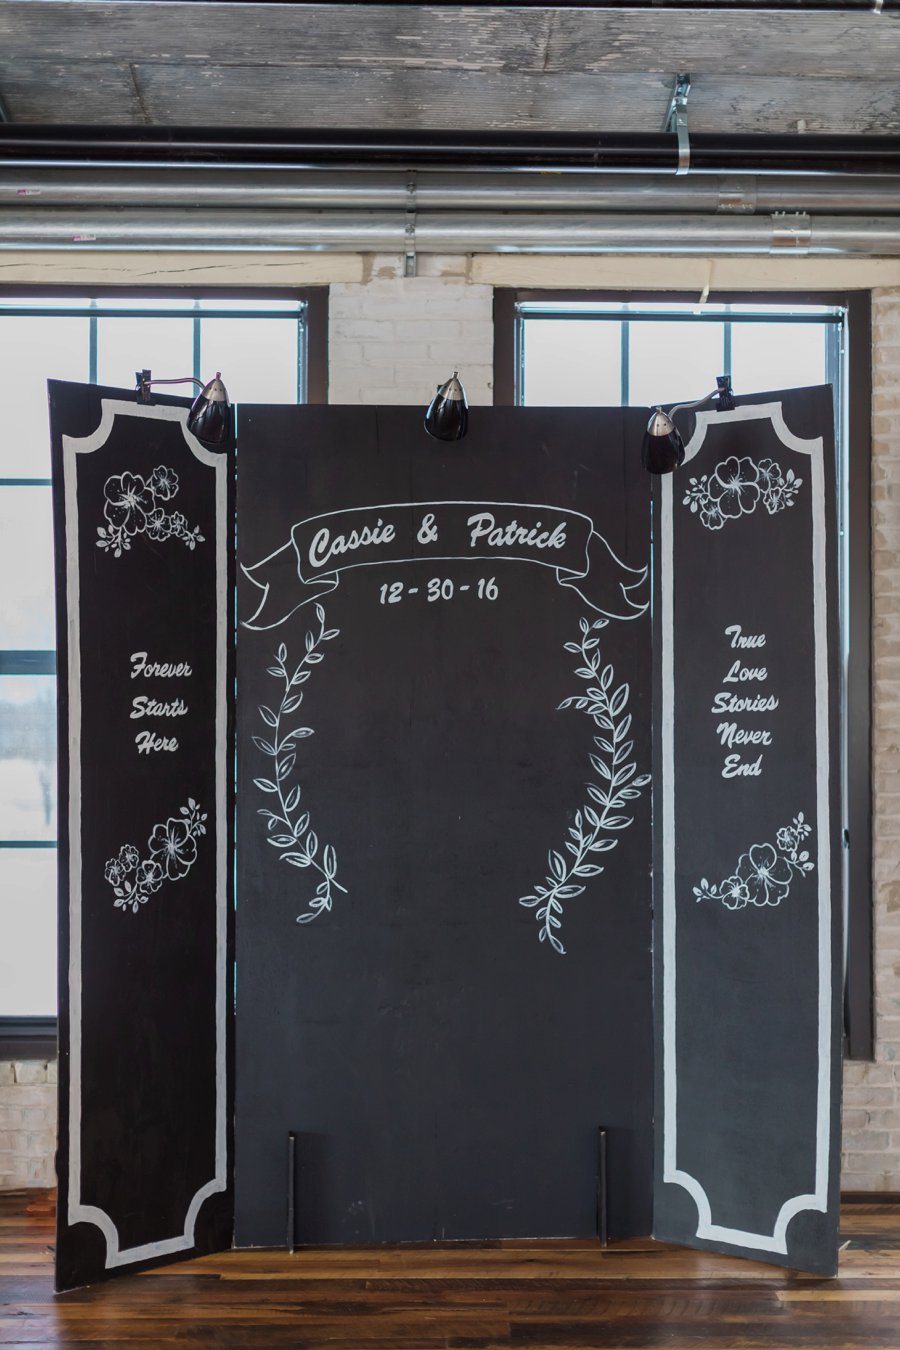 Cassie & Patrick
12-30-16
Forever
Starts
Here
True
Love
Stories
Never
End